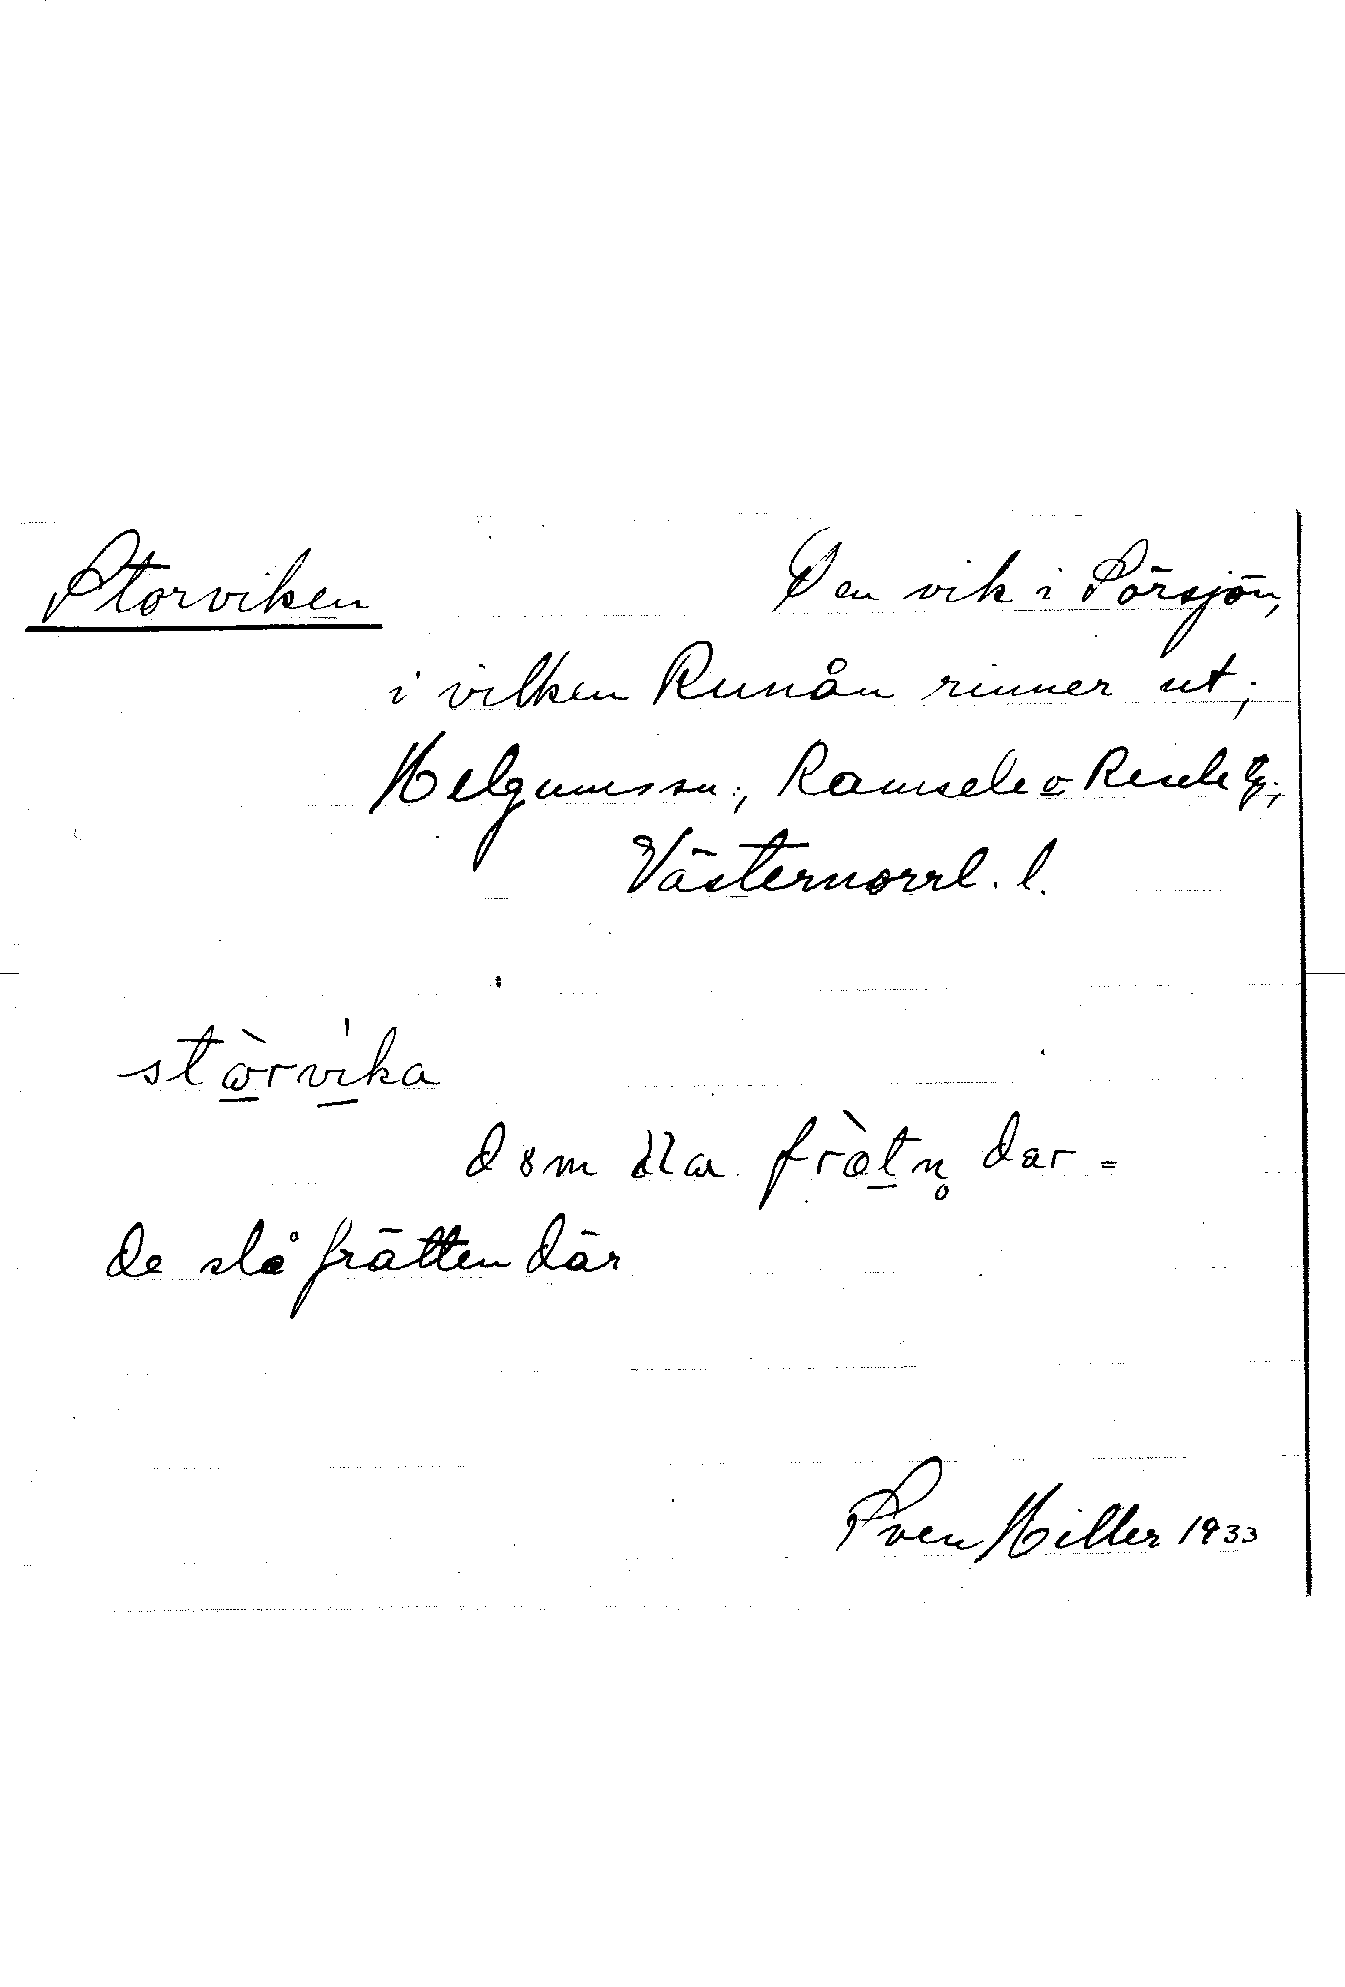 Storviken
Den vik i Sörsjön,
i vilken Runån rinner ut;
Helgumssn., Ramsele o Resele tg;
Västernorrl. l.
de slå frätten där
Sven Hiller 1933